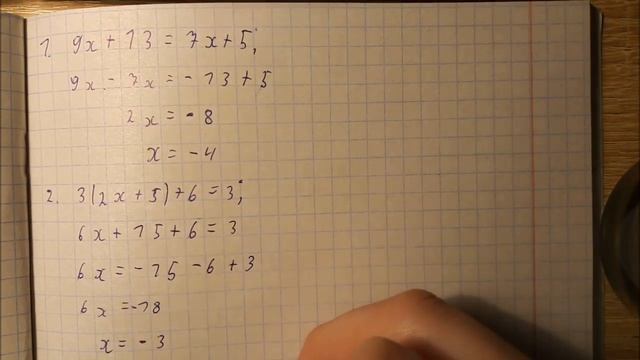 1. 9x + 13 = 7x + 5;
9x - 7x = - 13 + 5
2x = - 8
x = - 4
2. 3(2x + 5) + 6 = 3;
6x + 15 + 6 = 3
6x = - 15 - 6 + 3
6x = -18
x = - 3